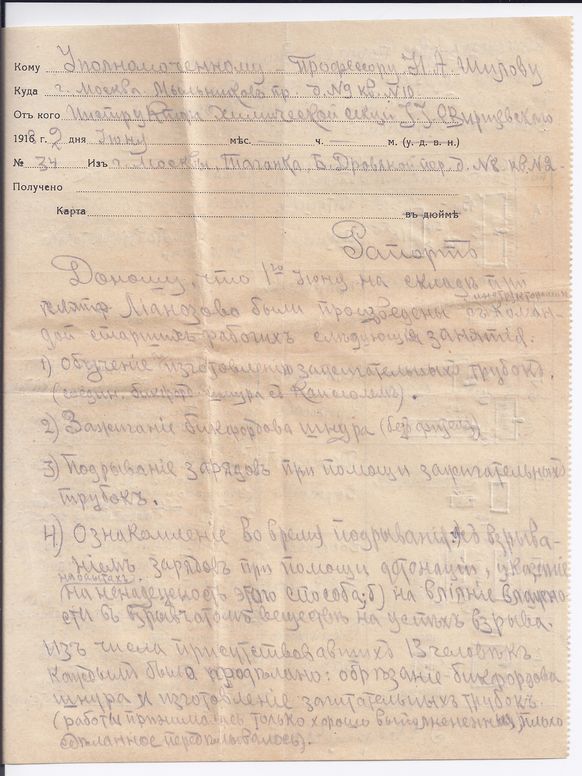 Кому Уполномоченному Профессору Н А Шилову
Куда г. Москва Мыльниковъ пр. д. №9 кв. №10
Отъ кого Инструктора Химической секціи
1916 г. 2 дня Іюня мѣс. ч. м. (у. д. в. н.)
№ 34 Изъ г. Москвы, Таганка Б. Дровяной пер. д. №8 кв. №2.
Получено
Карта въ дюймѣ
Рапортъ
Доношу, что 1го Іюня на складѣ при
платф. Мамозово были произведены инструкторами съ коман-
дой старшихъ рабочихъ слѣдующія занятія.
1) Обученіе изготовленію зажигательныхъ трубокъ.
(соедин. бикфорд. шнура съ капсюлемъ).
2) Зажиганіе бикфордова шнура (безъ)
3) Подрываніе зарядовъ при помощи зажигательныхъ
трубокъ.
4) Ознакомленіе во время подрыванія: а) съ взрыва-
ніемъ зарядовъ при помощи детонаціи, указаніе
на опытахъ
на ненадежность этого способа; б) на вліяніе влажно-
сти въ взрывчатомъ веществѣ на успѣхъ взрыва.
Изъ числа присутствовавшихъ 13 человѣкъ
каждымъ было продѣлано: обрѣзаніе бикфордова
шнура и изготовленіе зажигательныхъ трубокъ.
(работы принимались только хорошо выполненныя, плохо
сдѣланное передѣлывалось).